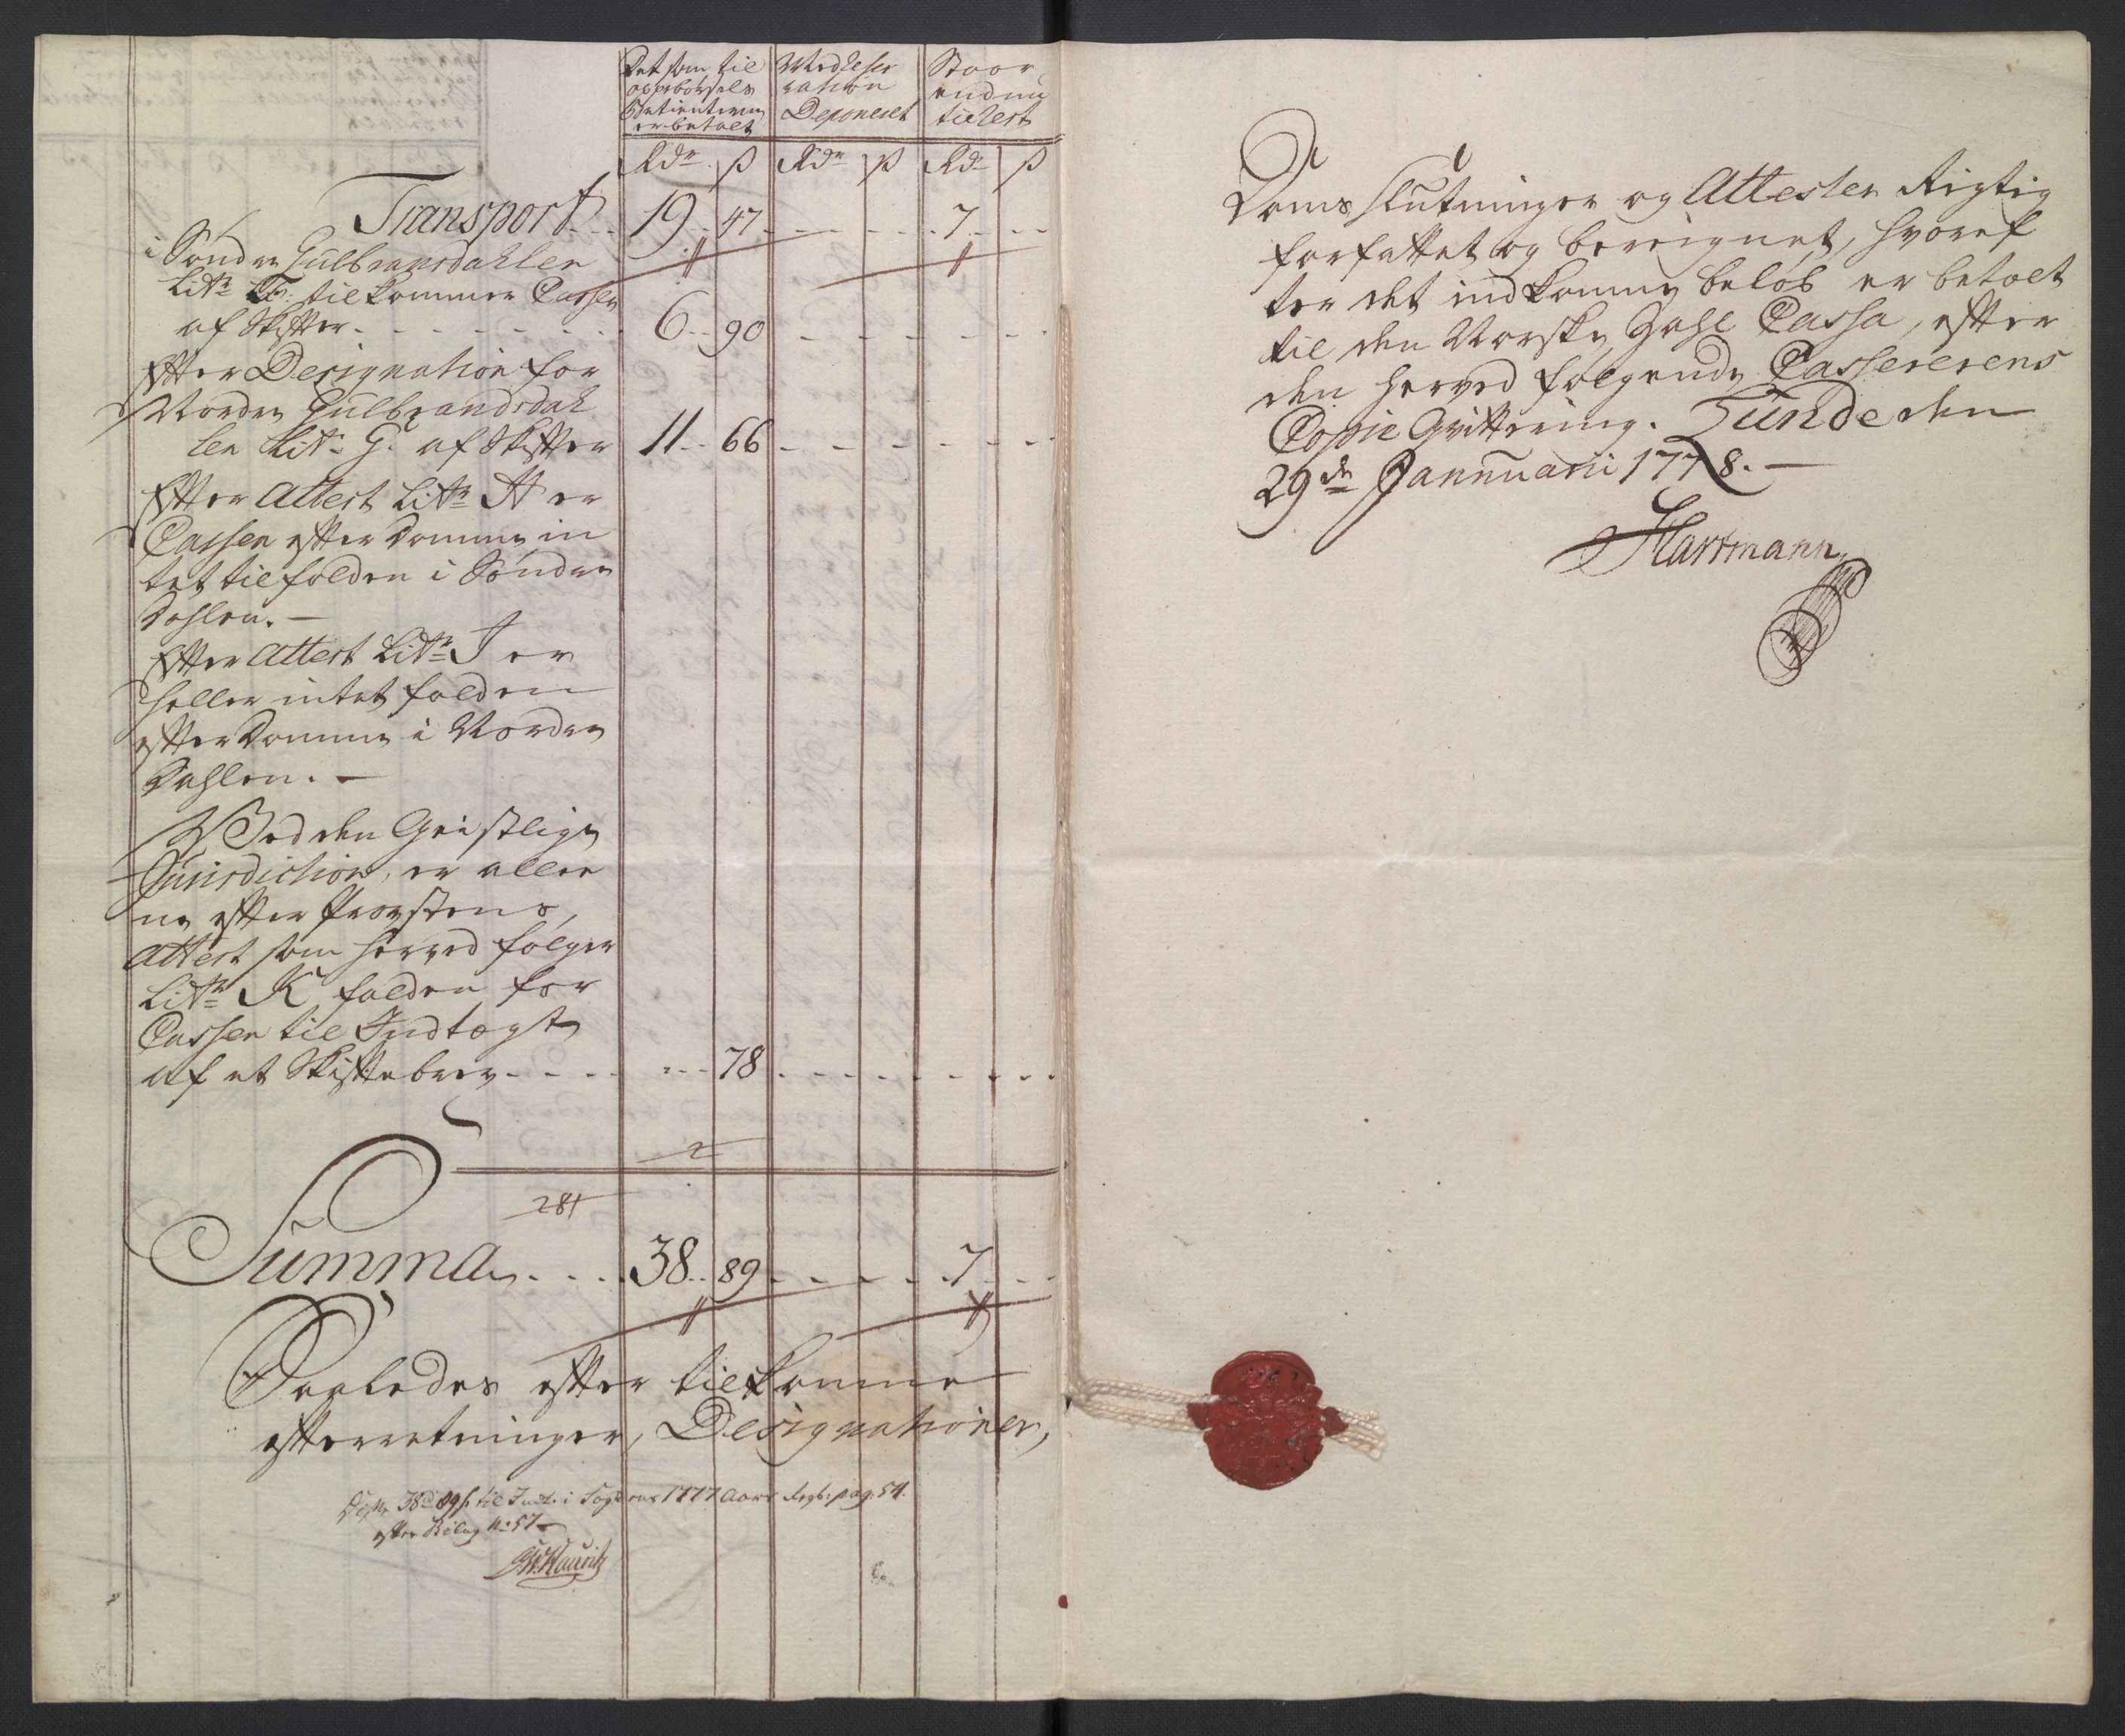 Det som til
oppebörsels
betienteren
er betalt
Med Leve
ration
Deponeret
Staar
endnu
til Rest
Rdr ß Rdr ß Rdr ß
Transport 19 47 7
i Söndre Gulbransdahlen
Litr F: tilkommer Cassen
af Skifter 6 90
Efter Designation for
Nordre Gulbrandsdah
len Litr G. af Skifter 11 66
Efter Attest Litr H er
Cassen efter Domme in
tet tilfalden i Söndre
Dahlen.
Efter Attest Litr I er
heller intet falden
efter Domme i Nordre
Dahlen.
Ved den Geistlige
Jurisdiction, er allee
ne efter Provstens
Attest som herved fölger
Litr K falden for
Cassen til Indtægt
af et Skiftebrev 78
2
281
Summa 38 89 7
Saaledes efter tilkomne
efterretninger, Designationer,
38 rd 89 s. til Indt. i Fogd 1777 Aars Regb: pag: 54.
efter Bilag No 57
Doms slutninger og Attester Rigtig
forfattet og beregnet, hvoref
ter det indkomne belöb er betalt
til den Norske Zahl Cassa, efter
den herved fölgende Cassererens
Copie Qvittering. Tunde den
29de Jannuarii 1778.
Hartmann